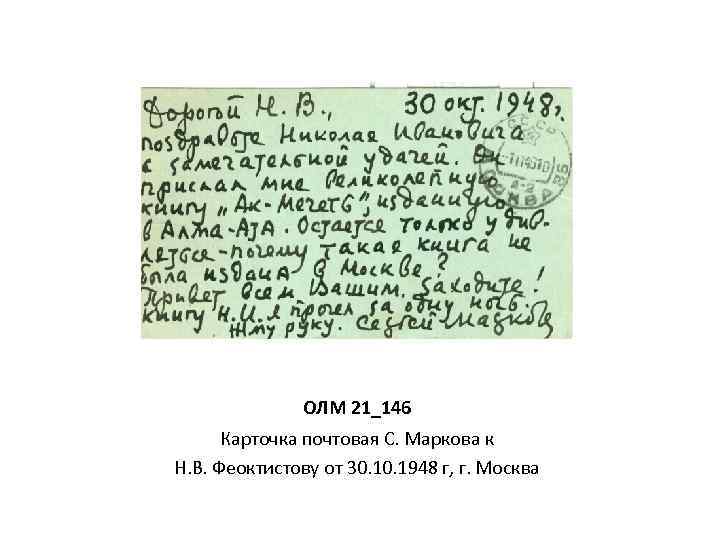 Дорогой Н. В., 30 окт. 1948 г.
поздравьте Николая Ивановича
с замечательной удачей. Он
прислал мне великолепную
книгу „Ак-Мечеть”, изданную
в Алма-Ата. Остается только удив-
ляться - почему такая книга не
была издана в Москве?
Привет всем Вашим. Заходите!
Книгу Н. И. я прочел за одну ночь.
Жму руку. Сергей Марков
МОСКВА
ОЛМ 21_146
Карточка почтовая С. Маркова к
Н.В. Феоктистову от 30.10.1948 г, г. Москва